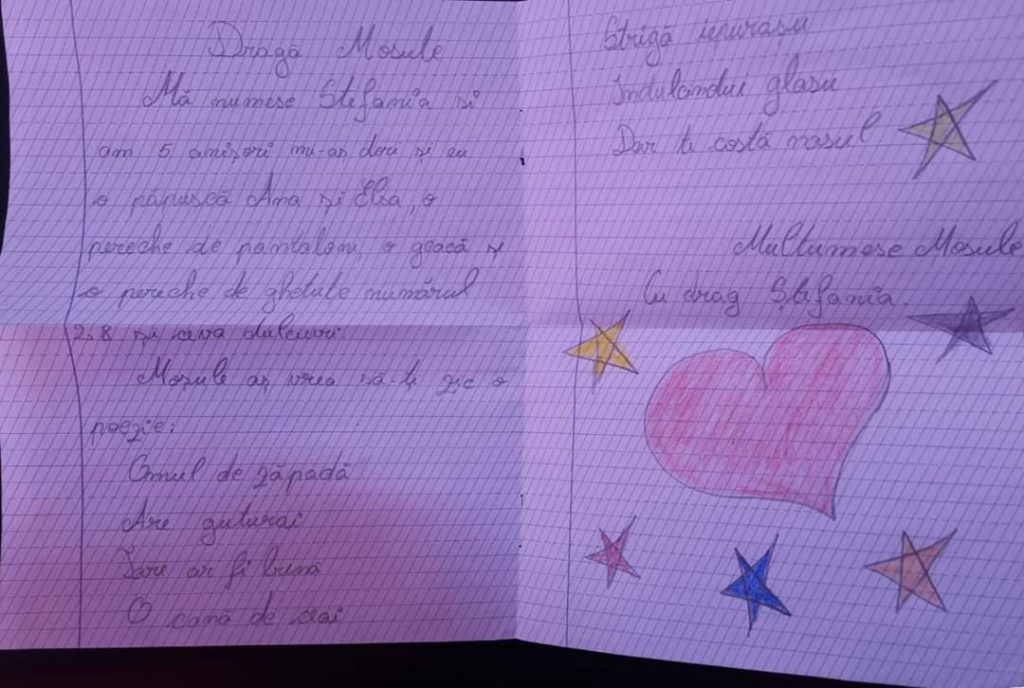 Dragă Mosule
Mă numesc Stefania si
am 5 anisori mi-as dori și eu
o păpușcă Ana și Elsa, o
pereche de pantaloni, o geacă și
o pereche de ghetute numărul
28 și ceva dulciuri
Mosule as vrea să-ti zic o
poezie:
Omul de zăpadă
Are guturai
Tare ar fi bună
O cană de ciai
Strigă iepurașu
Indulcindui glasu
Dar ti costă nasul
Multumesc Mosule
Cu drag Ștefania.